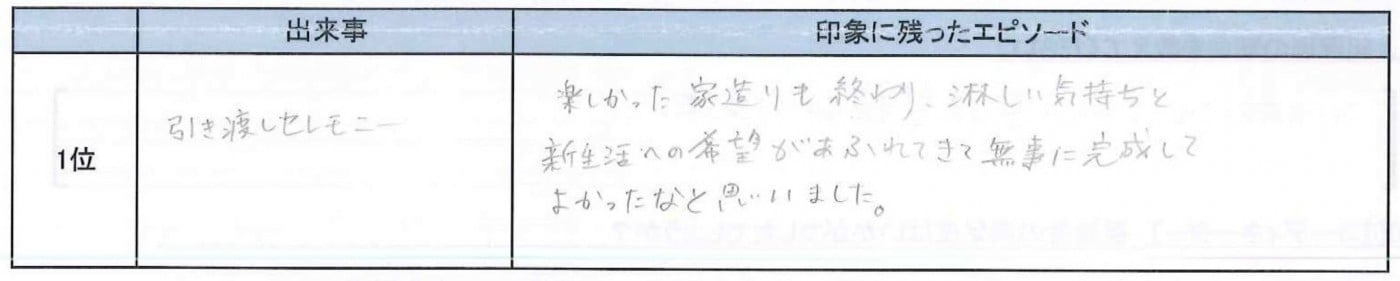 出来事 印象に残ったエピソード
1位 引き渡しセレモニー
楽しかった家造りも終わり、淋しい気持ちと
新生活への希望があふれてきて無事に完成して
よかったなと思いました。